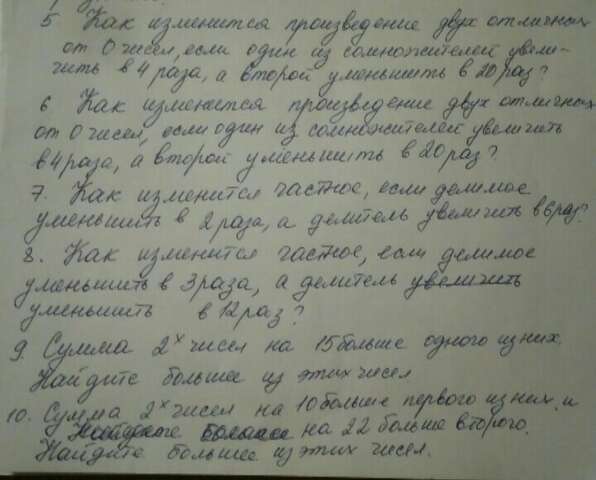 5 Как изменится произведение двух отличных
от 0 чисел, если один из сомножителей увели-
чить в 4 раза, а второй уменьшить в 20 раз?
6 Как изменится произведение двух отличных
от 0 чисел, если один из сомножителей увеличить
в 4 раза, а второй уменьшить в 20 раз?
7. Как изменится частное, если делимое
уменьшить в 2 раза, а делитель увеличить в 6 раз?
8. Как изменится частное, если делимое
уменьшить в 3 раза, а делитель увеличить
уменьшить в 12 раз?
9. Сумма 2х чисел на 15 больше одного из них.
Найдите большее из этих чисел
10. Сумма 2х чисел на 10 больше первого из них и
на 22 больше второго.
Найдите большее из этих чисел.